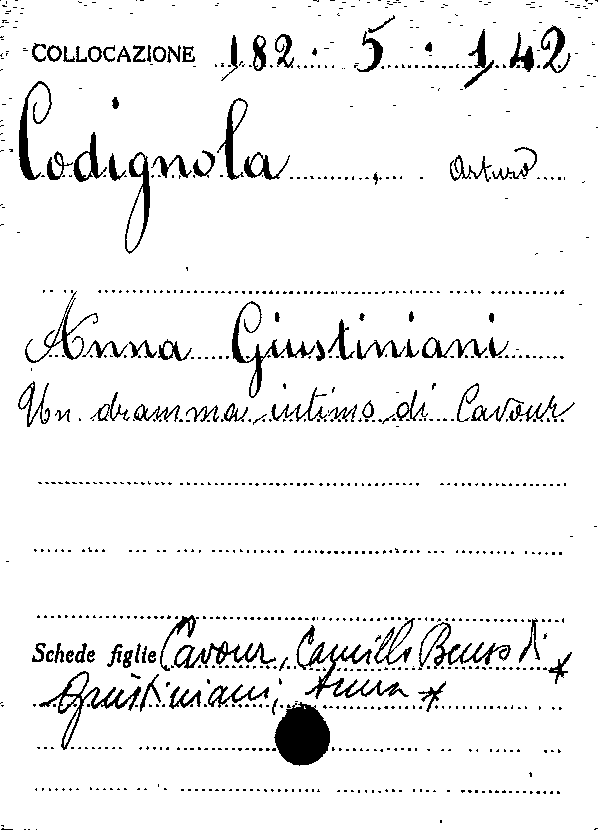 COLLOCAZIONE 182 . 5 . 142
Codignola, Arturo
Anna Giustiniani
Un dramma intimo di Cavour
Schede figlie Cavour, Camillo Benso di *
Giustiniani, Anna *